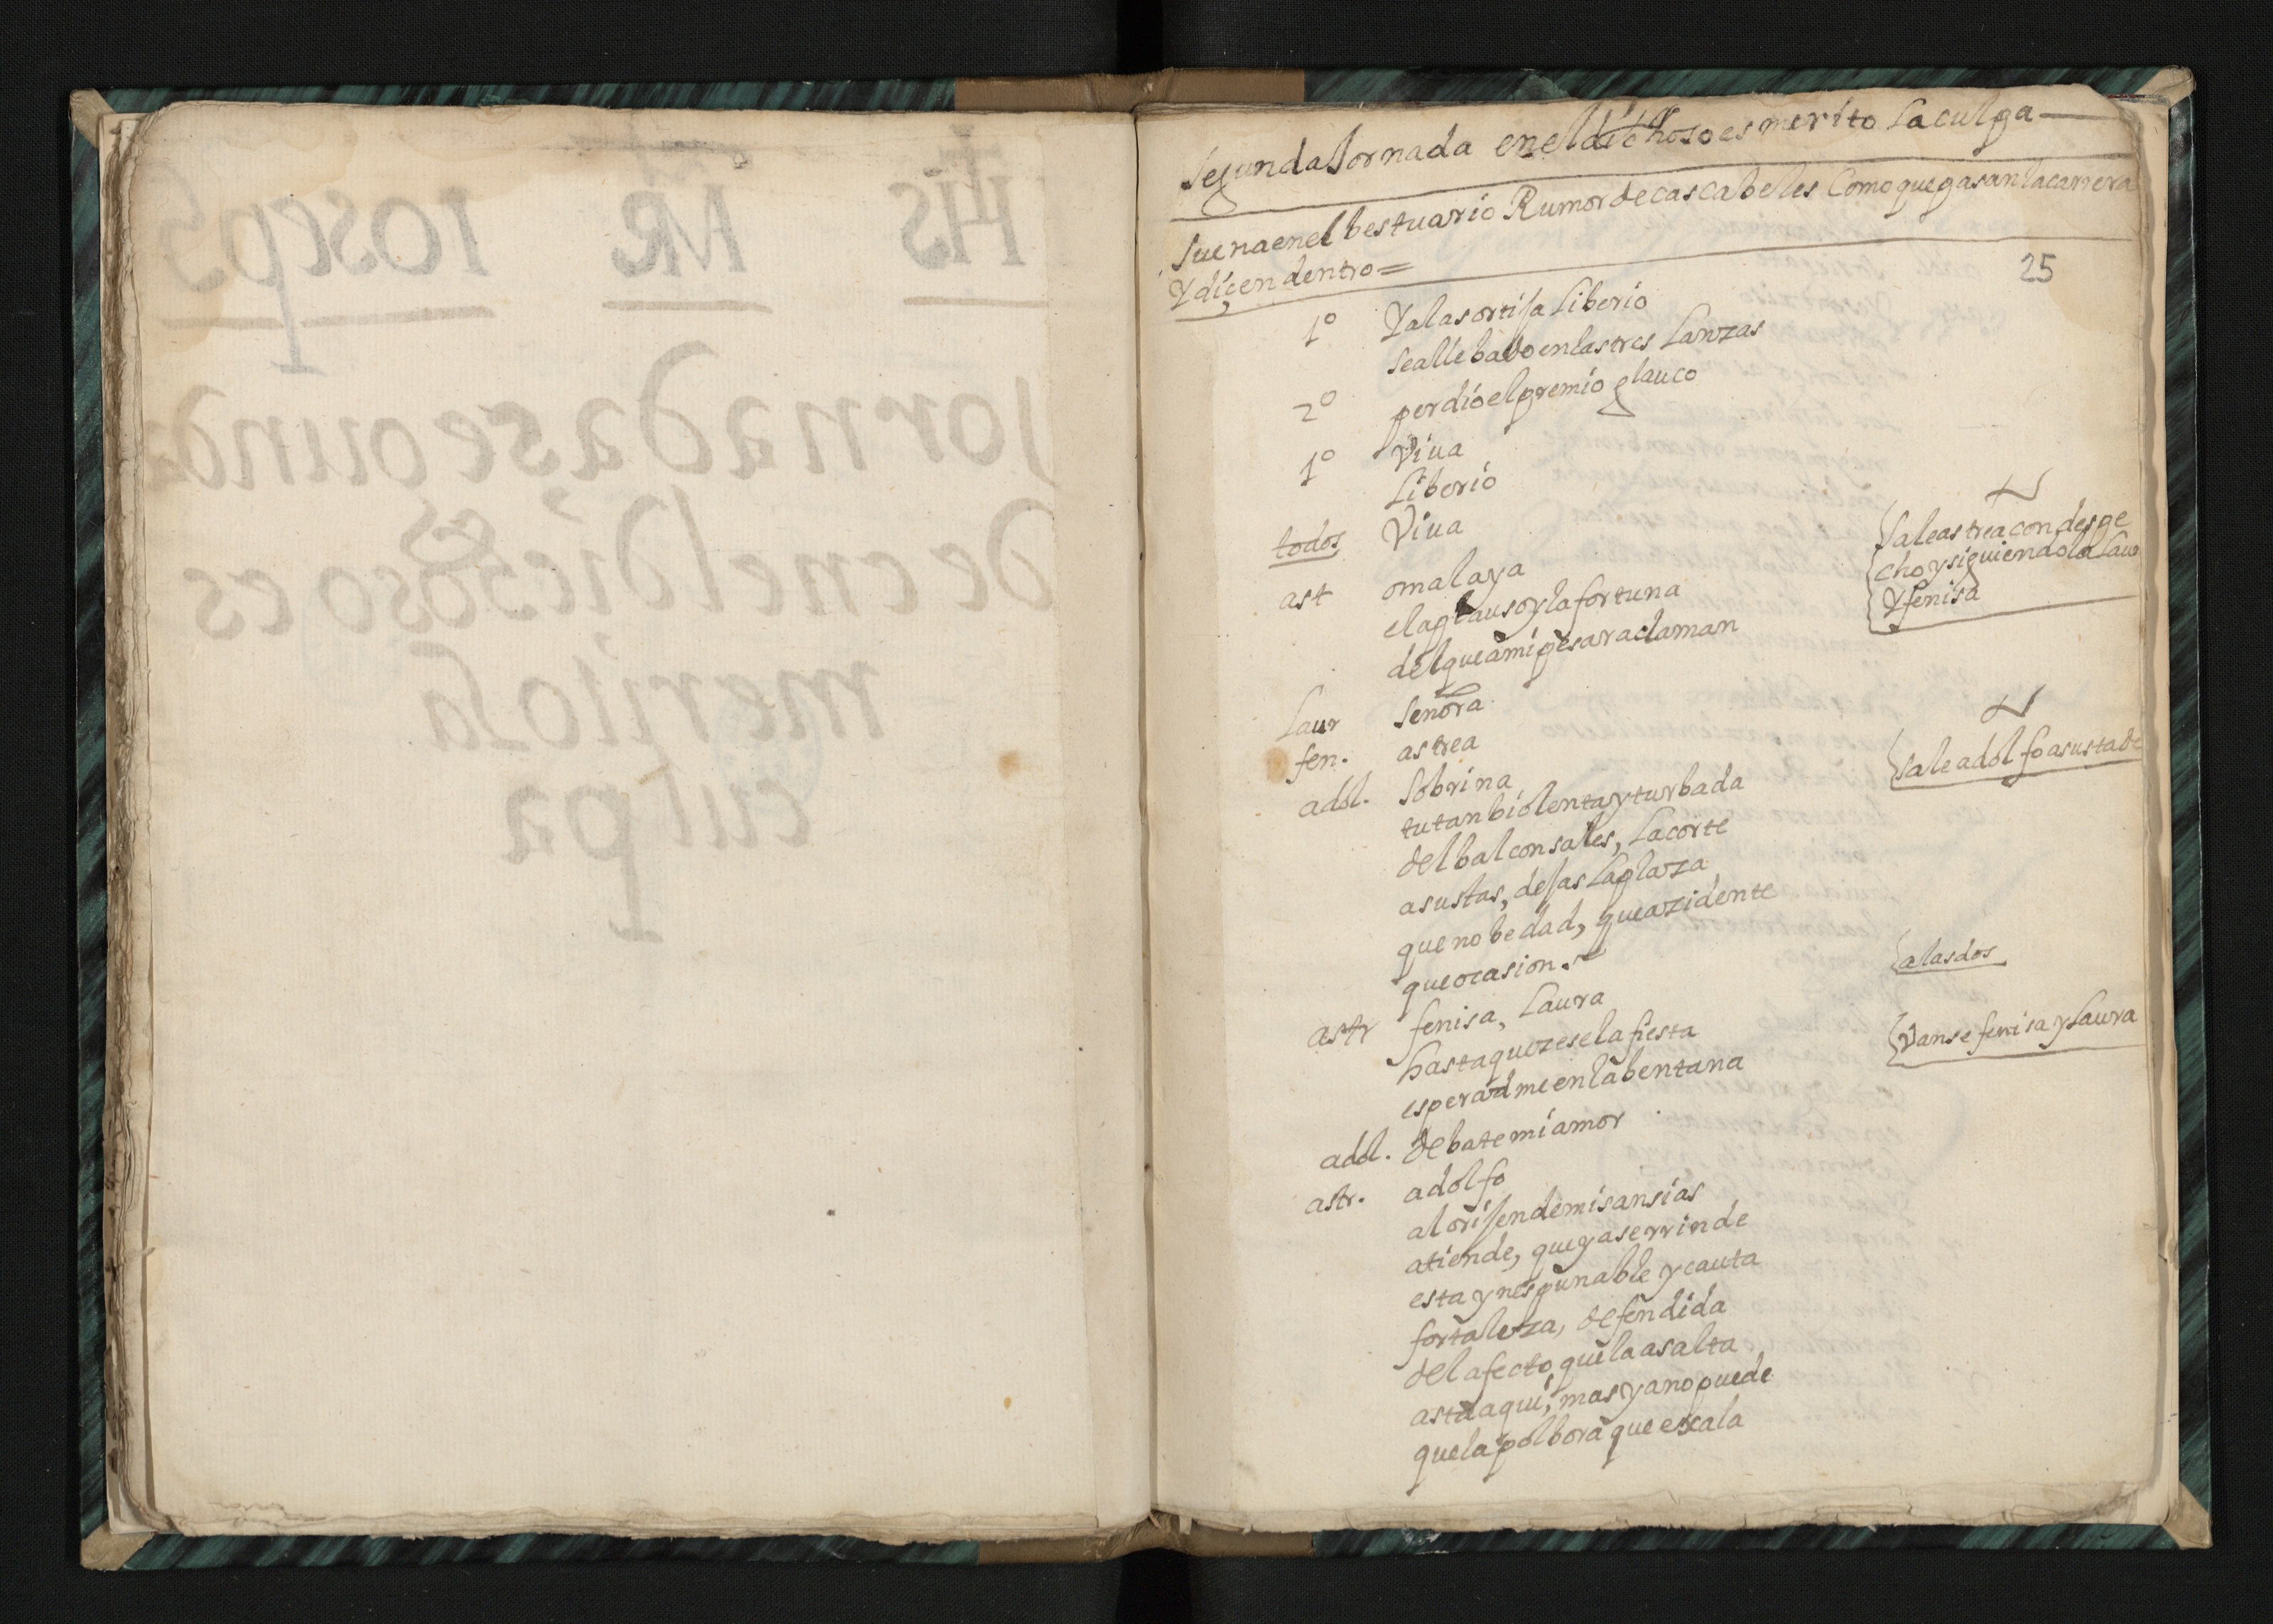 IHS MR Ioseph
Jornada segunda
de en el Dichoso es
merito la
culpa
Segunda Jornada en el dichoso es merito La culpa
Suena en el bestuario Rumor de cascabeles Como que pasan la carrera
Y diçen dentro =
25
1º Y a la sortija Liberio
se alle bado en las tres Lanzas
2º perdio el premio glauco
1º Viua
Liberio
todos Viua
ast o mal aya
el aplauso y la fortuna
del que a mi pesar aclaman
Sale astrea con despe
cho y siguiendola Lau
Y fenisa
Laur Señora
fen. astrea
adol. Sobrina
Sale adolfo asustado
tu tan biolenta y turbada
del balcon sales, La corte
asustas, dejas La plaza
que nobedad, que azidente
que ocasion.
astr fenisa, Laura
a las dos
hasta que zese la fiesta
esperadme en la bentana
Vanse fenisa y Laura
adol. debate mi amor
astr. adolfo
al orijen de mis ansias
atiende, que ya se rrinde
esta ynespunable y cauta
fortaleza, defendida
del afecto que la asalta
asta aqui, mas ya no puede
que la polbora que exala